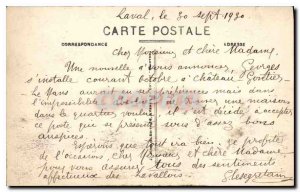 Laval, le 30 Sept 1920
CARTE POSTALE
CORRESPONDANCE ADRESSE
Cher Monsieur et chère Madame,
Une nouvelle à vous annoncer, Georges
s'installe courant octobre à Château Gontier.
Le Mans aurait eu ses préférences mais dans
l'impossibilité de trouver une maison
dans ce quartier voulu il s'est décidé à accepter
ce poste qui se présente sous d'assez bons
auspices.
Espérons que tout ira bien. Je profite
de l'occasion, cher Monsieur et chère Madame
pour vous assurer des sentiments
affectueux des Lavallois.